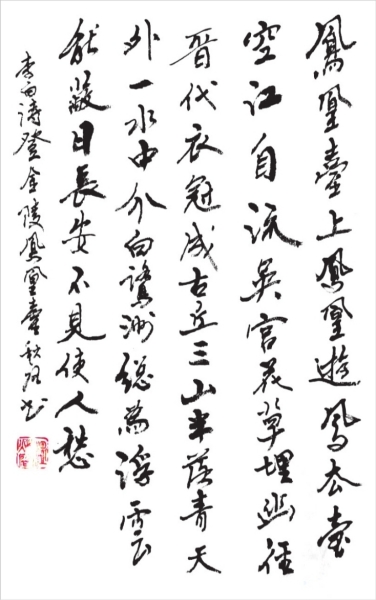 鳳凰臺上鳳凰遊鳳去臺
空江自流吳宮花草埋幽徑
晉代衣冠成古丘三山半落青天
外一水中分白鷺洲總為浮雲
能蔽日長安不見使人愁
李白詩登金陵鳳凰臺秋書